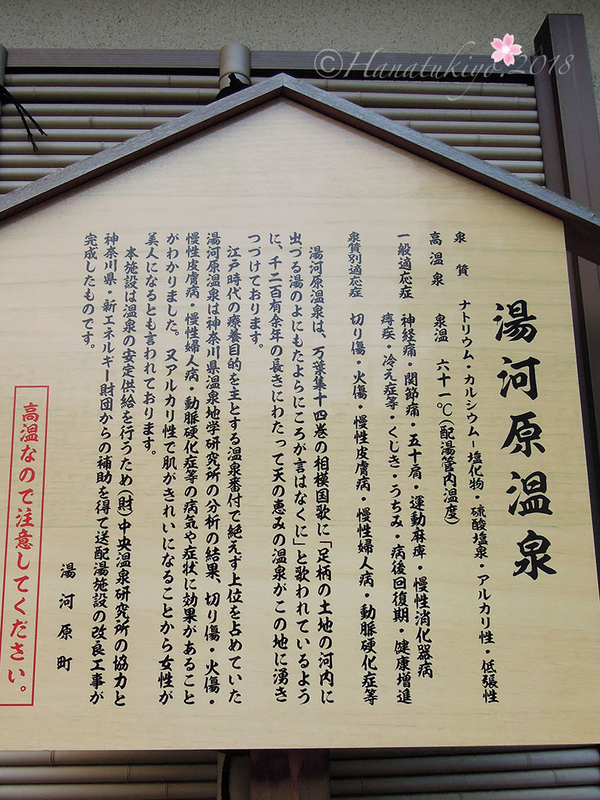 ©Hanatukiyo.2018
湯河原温泉
泉質 ナトリウム・カルシウム−塩化物・硫酸塩泉・アルカリ性・低張性
高温泉 泉温 六十一℃(配湯管内温度)
一般適応症 神経痛・関節痛・五十肩・運動麻痺・慢性消化器病
痔疾・冷え症等・くじき・うちみ・病後回復期・健康増進
泉質別適応症 切り傷・火傷・慢性皮膚病・慢性婦人病・動脈硬化症等
湯河原温泉は、万葉集十四巻の相模国歌に「足柄の土地の河内に
出づる湯のよにもたよらにころが言はなくに」と歌われているよう
に、千二百有余年の長きにわたって天の恵みの温泉がこの地に湧き
つづけております。
江戸時代の療養目的を主とする温泉番付で絶えず上位を占めていた
湯河原温泉は神奈川県温泉地学研究所の分析の結果、切り傷・火傷・
慢性皮膚病・慢性婦人病・動脈硬化症等の病気や症状に効果があること
がわかりました。又アルカリ性で肌がきれいになることから女性が
美人になるとも言われております。
本施設は温泉の安定供給を行うため(財)中央温泉研究所の協力と
神奈川県・新エネルギー財団からの補助を得て送配湯施設の改良工事が
完成したものです。
湯河原町
高温なので注意してください。